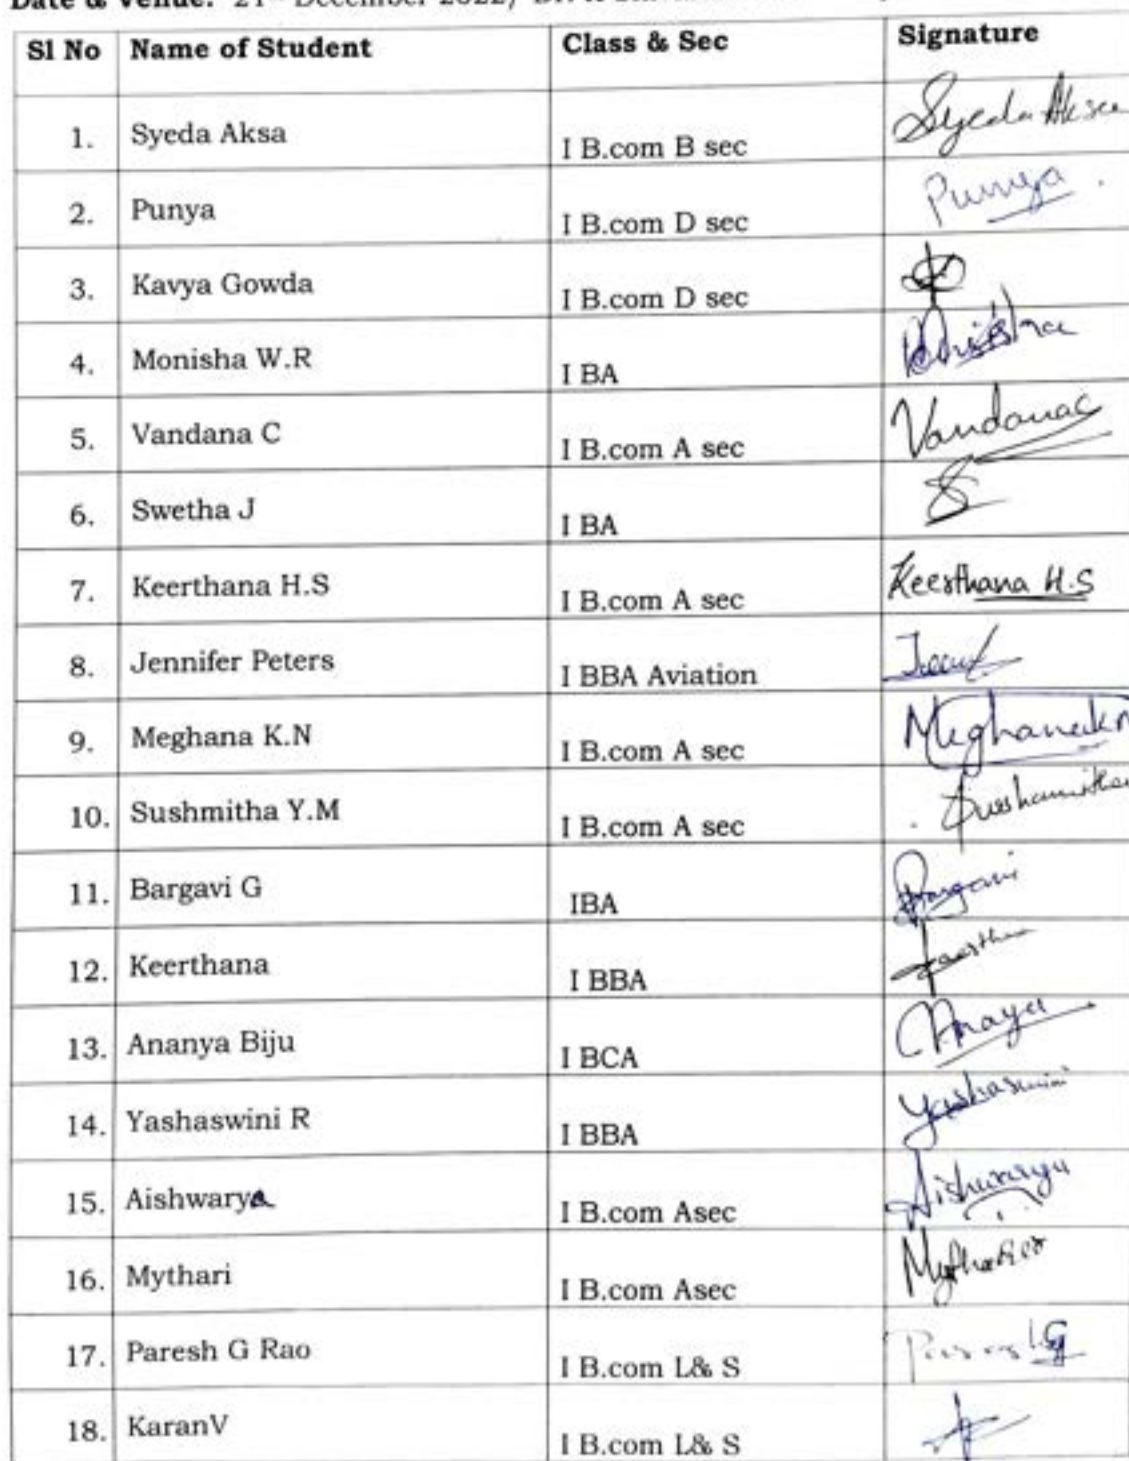 Date & Venue: 21 December 2022, Dr.
Sl No Name of Student Class & Sec Signature
1. Syeda Aksa I B.com B sec Syeda Aksa
2. Punya I B.com D sec Punya
3. Kavya Gowda I B.com D sec
4. Monisha W.R I BA
5. Vandana C I B.com A sec Vandanac
6. Swetha J I BA
7. Keerthana H.S I B.com A sec Keerthana H.S
8. Jennifer Peters I BBA Aviation
9. Meghana K.N I B.com A sec Meghanakn
10. Sushmitha Y.M I B.com A sec Sushmitha
11. Bargavi G IBA Bargavi
12. Keerthana I BBA Keerthan
13. Ananya Biju I BCA
14. Yashaswini R I BBA Yashaswini
15. Aishwarya I B.com Asec Aishwarya
16. Mythari I B.com Asec
17. Paresh G Rao I B.com L& S
18. KaranV I B.com L& S